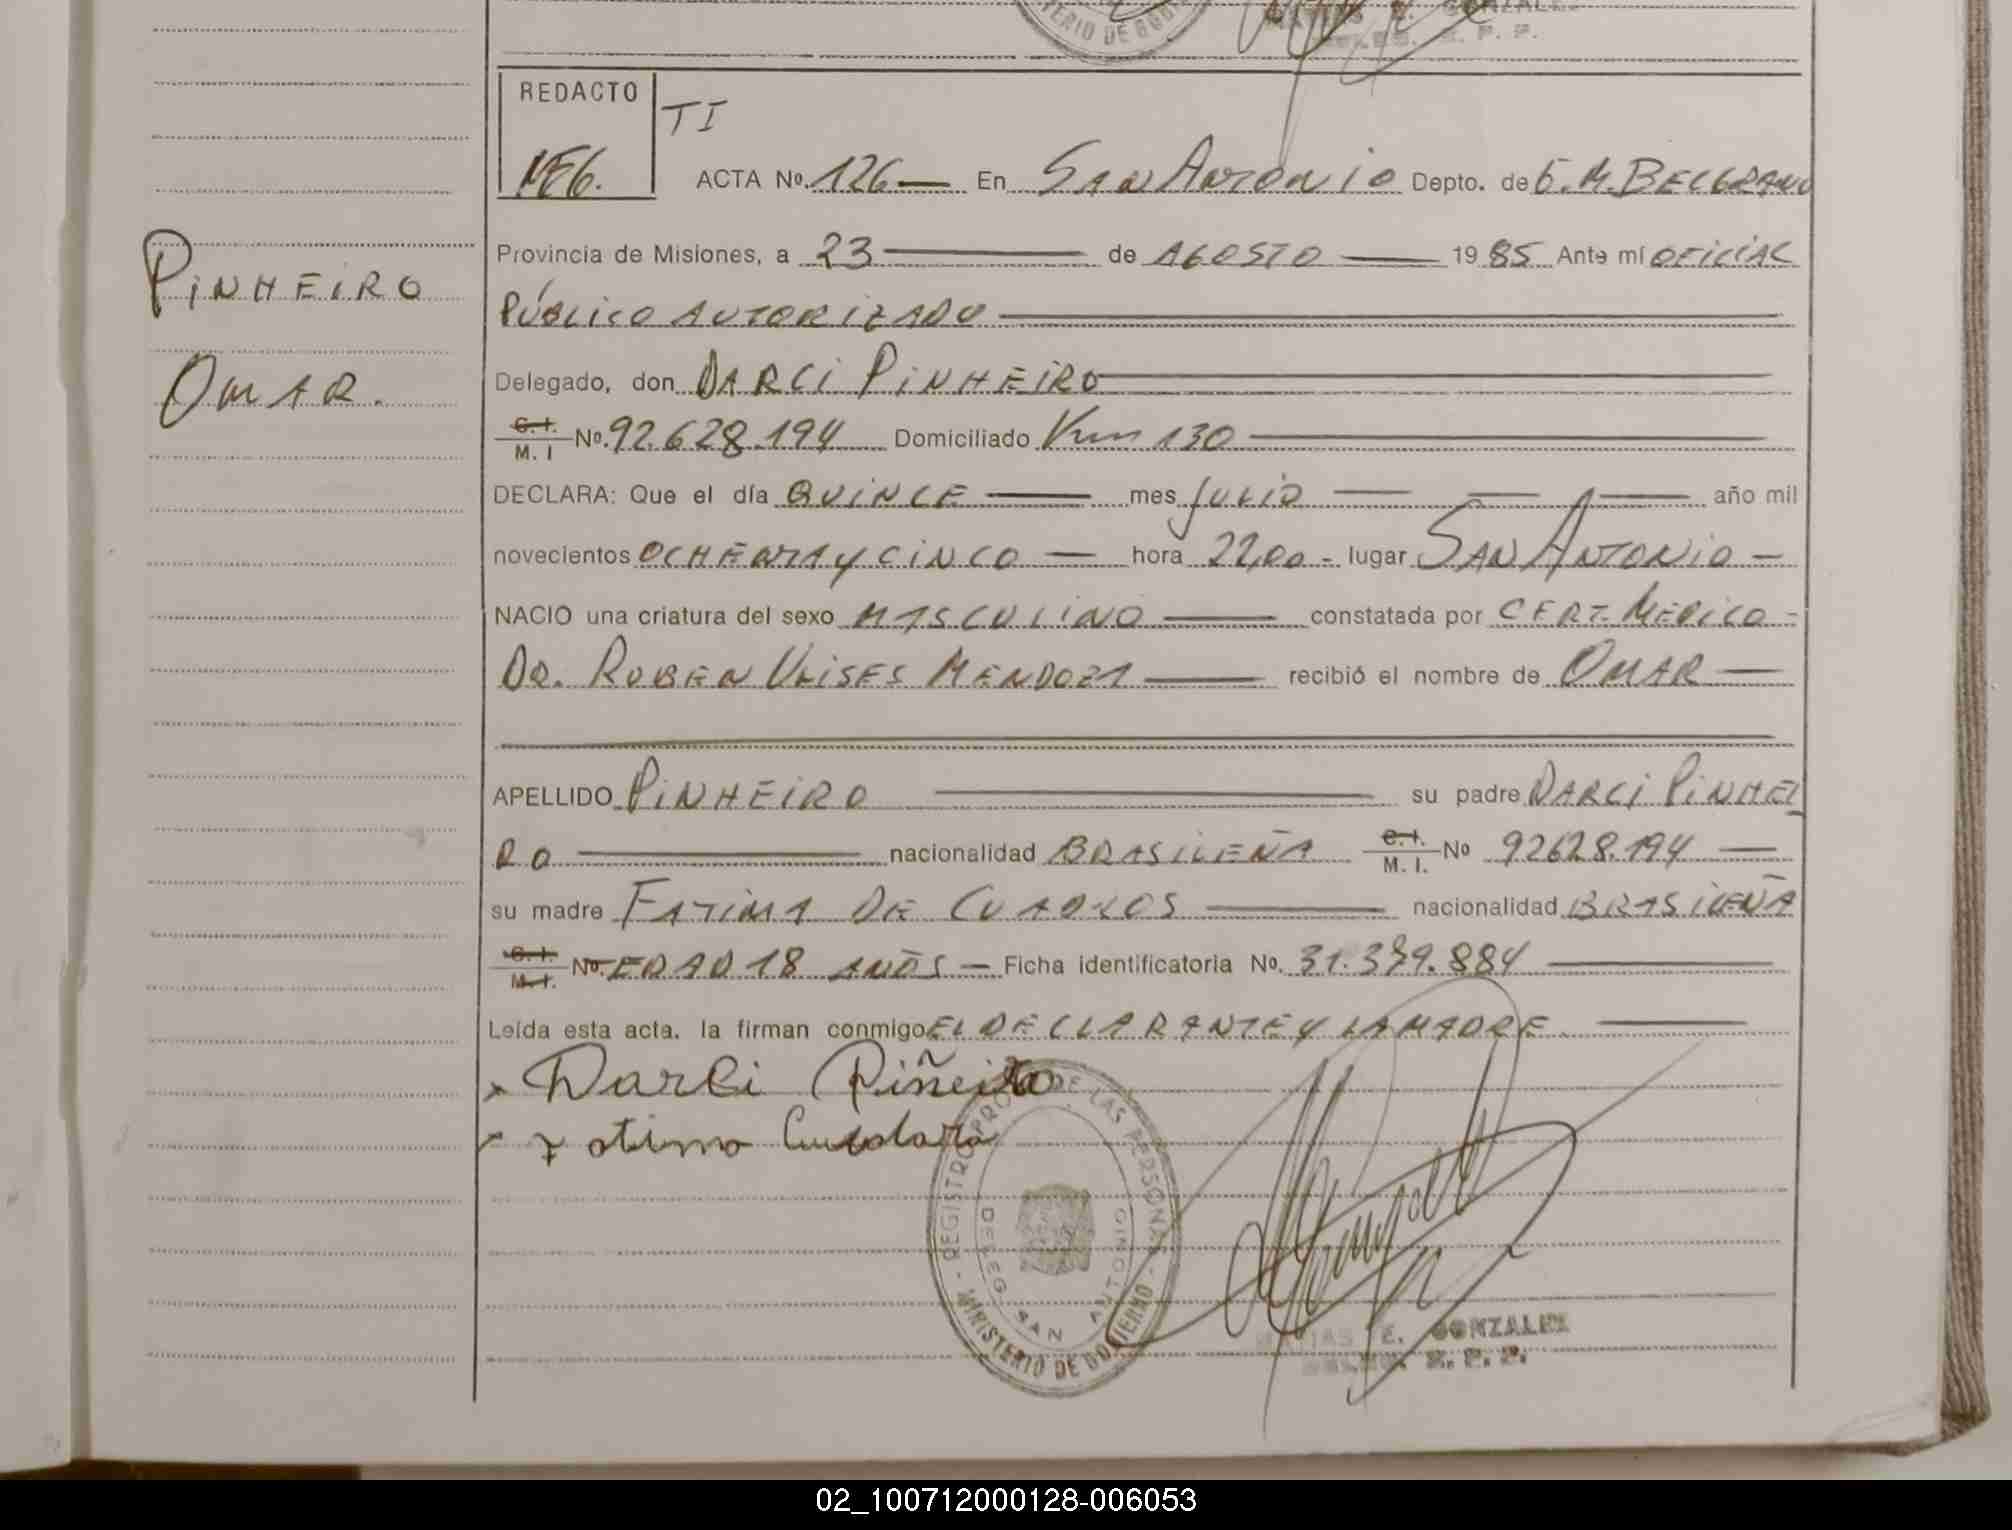 GONZALEZ
MINISTERIO DE GOB
REDACTO
TI
ACTA Nº. 126 — En SAN ANTONIO Depto. de G. M. BELGRANO
Provincia de Misiones, a 23 — de AGOSTO — 1985 Ante mí OFICIAL
PÚBLICO AUTORIZADO —
PINHEIRO
OMAR.
Delegado, don DARCI PINHEIRO —
C. I. M. I Nº. 92.628.194 Domiciliado Km 130 —
DECLARA: Que el día QUINCE — mes JULIO — — — año mil
novecientos OCHENTA Y CINCO — hora 22,00 - lugar SAN ANTONIO —
NACIO una criatura del sexo MASCULINO — constatada por CERT. MEDICO -
DR. RUBEN ULISES MENDOZA — recibió el nombre de OMAR —
APELLIDO PINHEIRO — su padre DARCI PINHEI
RO — nacionalidad BRASILEÑA C. I. M. I. Nº 92628.194 —
su madre FATIMA DE CUADROS — nacionalidad BRASILEÑA
C. I. M. I. Nº. EDAD 18 AÑOS — Ficha identificatoria No. 31.379.884 —
Leída esta acta. la firman conmigo EL DECLARANTE Y LA MADRE. —
x Darci Piñeiro
x Fatima
REGISTRO PROV. DE LAS PERSONAS - MINISTERIO DE GOBIERNO -
DELEG. SAN ANTONIO
E. GONZALEZ
02_100712000128-006053